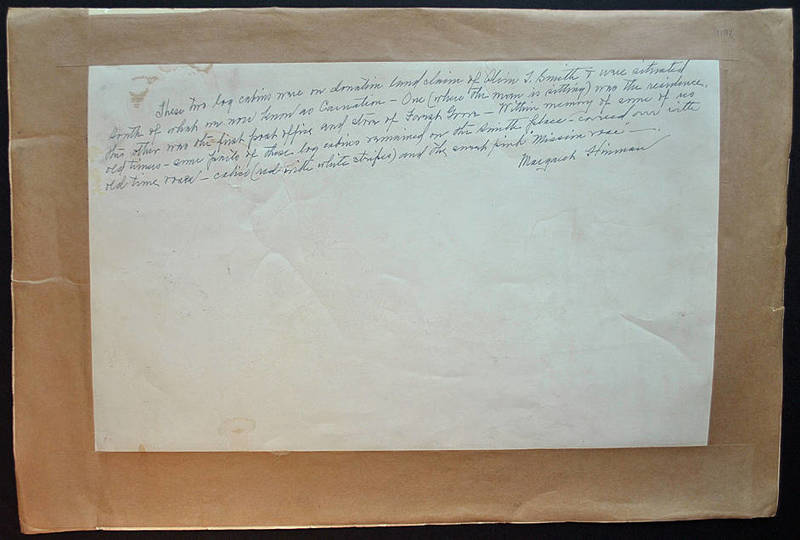 These two log cabins were on donation land claim of Alvin T. Smith & were situated
south of what we now know as Carnation - One (where the man is sitting) was the residence,
the other was the first post office and store of Forest Grove - Within memory of some of us
old timers - some parts of these log cabins remained on the Smith place - covered over with
old time roses - calico (red with white stripes) and the sweet pink Mission rose -.
Margaret Hinman